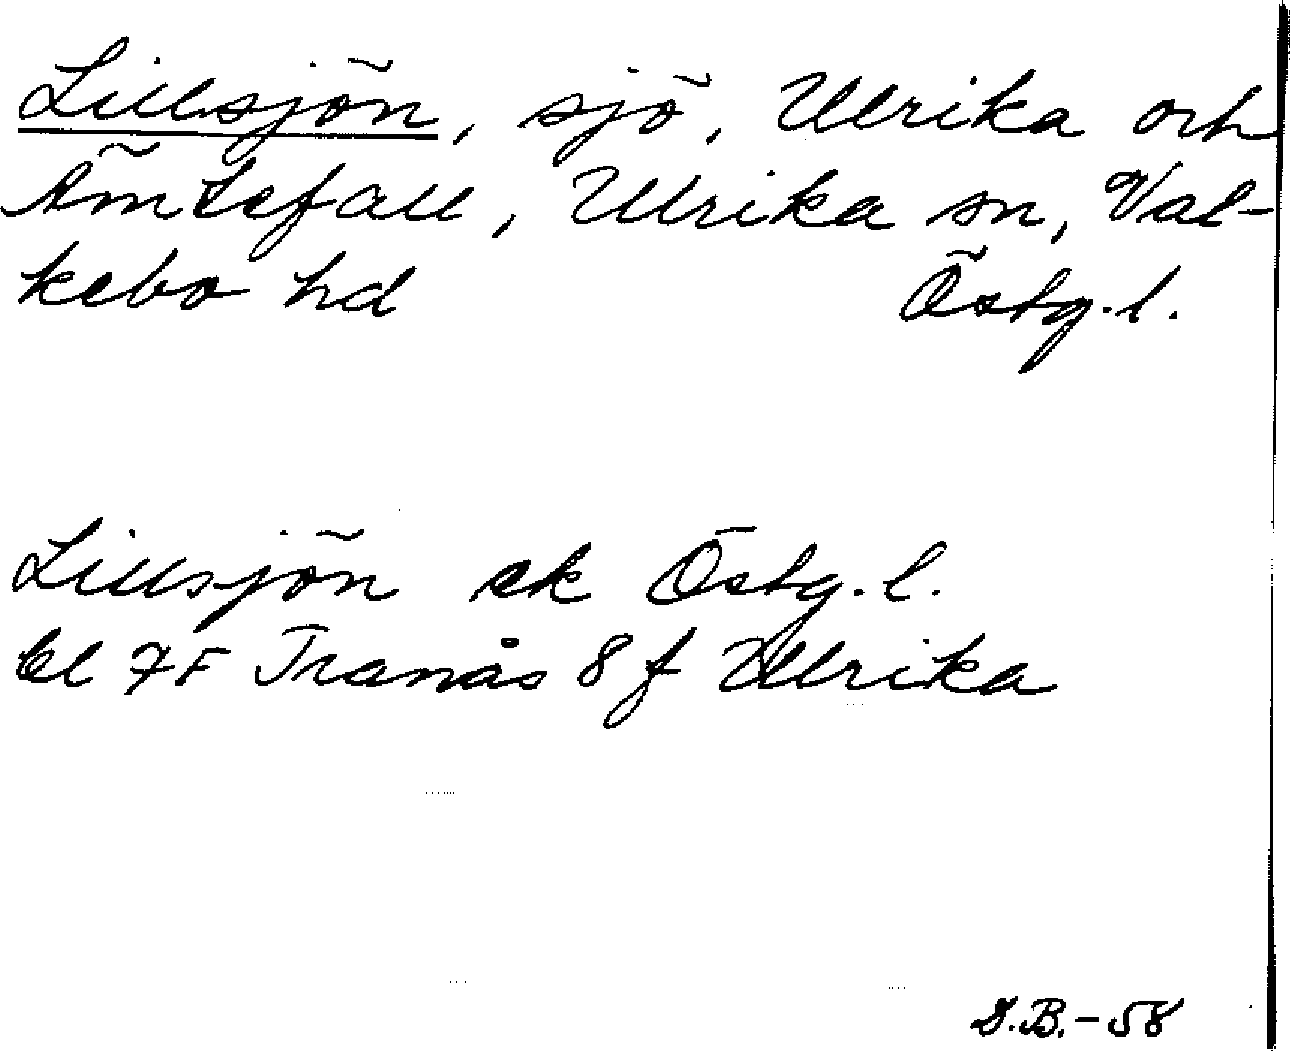 Lillsjön, sjö, Ulrika och
Ämtefall, Ulrika sn, Val-
kebo hd Östg.l.
Lillsjön ek Östg.l.
bl 7F Tranås 8f Ulrika
S.B.-58